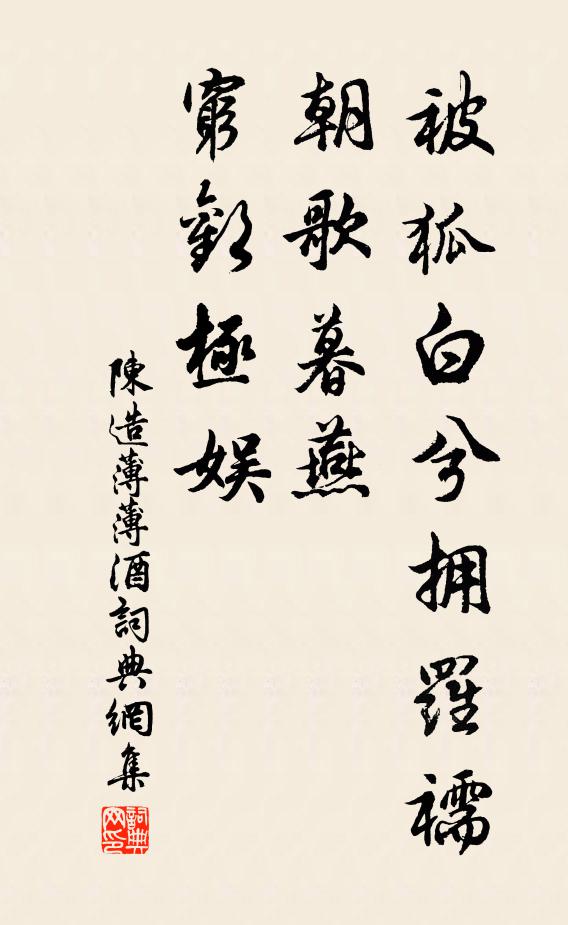 被狐白兮拥羅襦
朝歌暮燕
窮歡極娱
陳造薄薄酒詞典網集
詞典網印